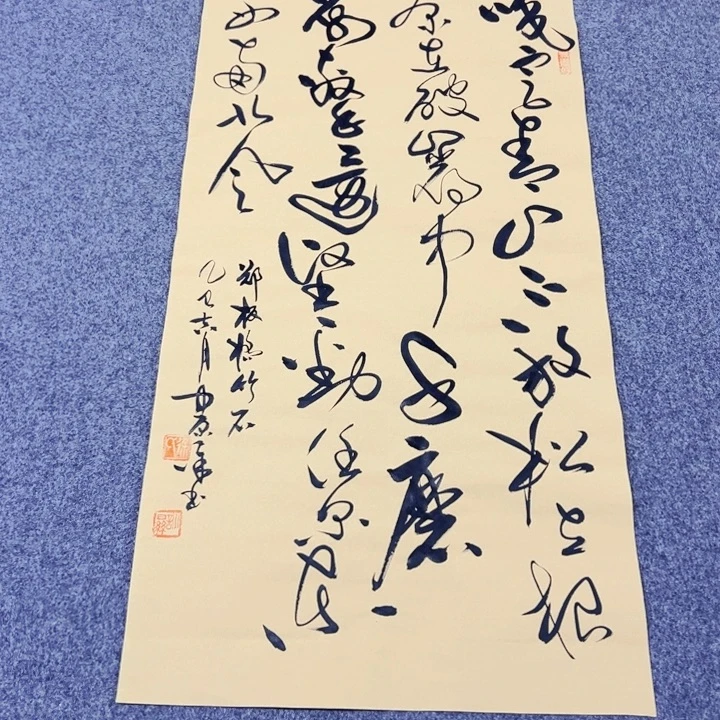 咬定青山不放松立根
原在破岩中千磨
萬擊還坚劲任尔东
西南北风
郑板桥竹石
乙巳六月 书